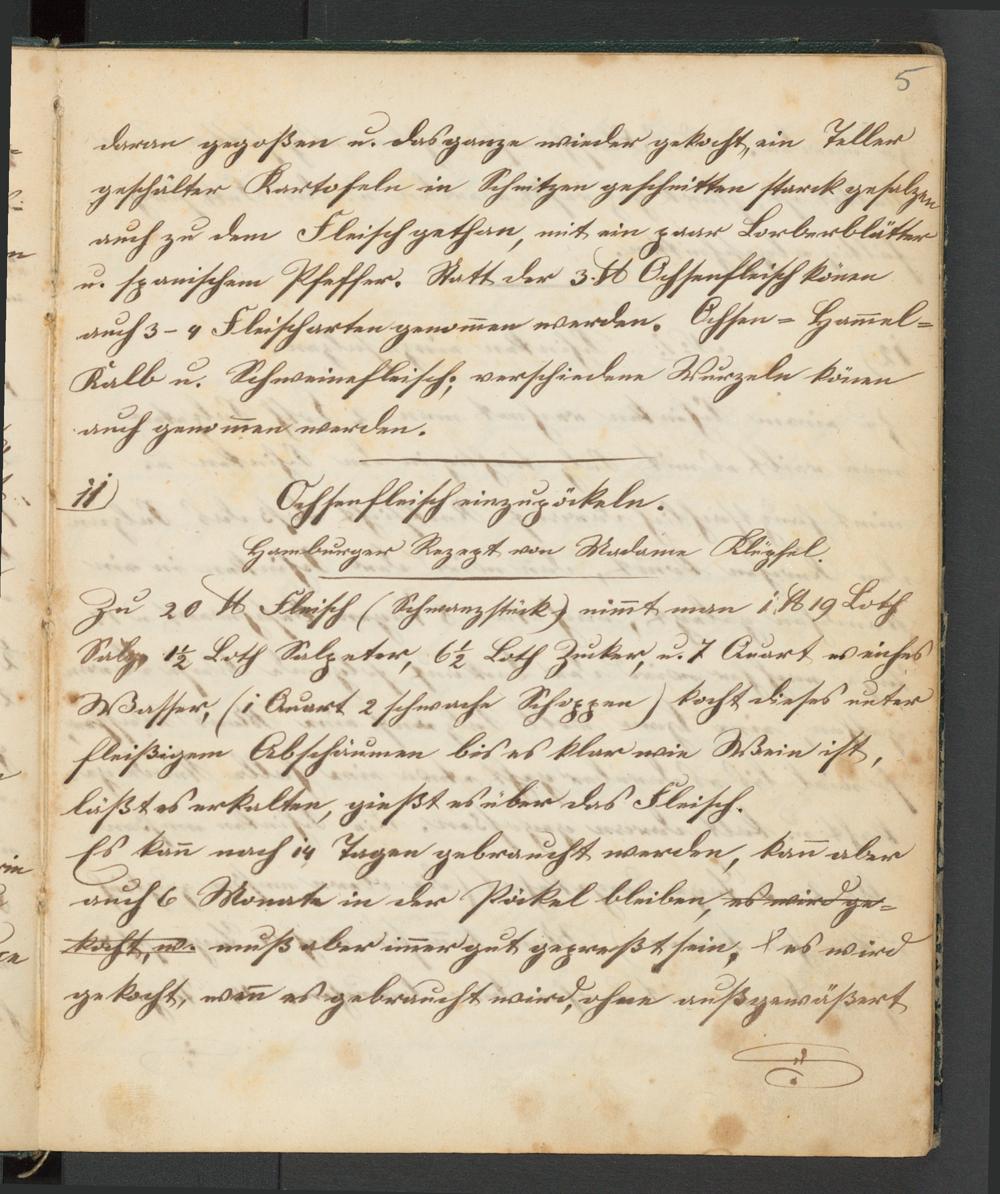 5
daran gegoßen u. das ganze wieder gekocht, ein Teller
geschälter Kartofeln in Schnitzen geschnitten starck gesalzen
auch zu dem Fleisch gethan, mit ein paar Lorberblätter
u. spanischem Pfeffer. Statt der 3 ℔ Ochsenfleisch könen
auch 3-4 Fleischarten genom̅en werden. Ochsen= Ham̅el=
Kalb u. Schweinefleisch; verschiedene Wurzeln könen
auch genom̅en werden.
11)
Ochsenfleisch einzupöckeln.
Hamburger Rezept von Madame Klüpfel.
Zu 20 ℔ Fleisch (Schwanzstück) nim̅t man 1 ℔ 19 Loth
Salz, 1½ Loth Salpeter, 6½ Loth Zucker, u. 7 Quart weiches
Wasser, (1 Quart 2 schwache Schoppen) kocht dieses unter
fleißigem Abschäumen bis es klar wie Wein ist,
läßt es erkalten, gießt es über das Fleisch.
Es kan̅ nach 14 Tagen gebraucht werden, kan̅ aber
auch 6 Monate in der Pöckel bleiben, es wird ge=
kocht, w. muß aber im̅er gut gepreßt sein, es wird
gekocht, wen̅ es gebraucht wird, ohne außgewäßert